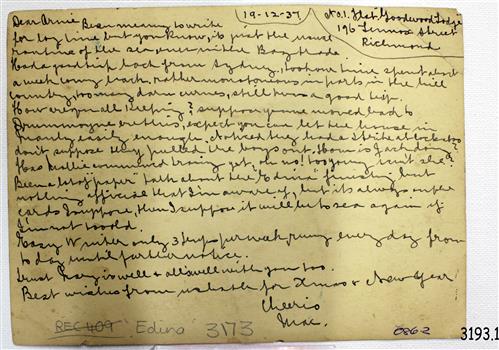 19-12-37
No. 1. Flat Goodwood Lodge
196 Lennox Street
Richmond
Dear Arnie Been meaning to write
for long time but you know, its just the usual
routine of like ever in the Bay trade
Had a good trip back from Sydney, took our time spent about
a week coming back, rather monotonous in parts in the hill
country, too many darn curves, still twas a good trip.
How are you all keeping? suppose you've moved back to
Drummoyne ere this, expect you can let the house in
easily enough. Noticed they had a strike at Cockatoo
don't suppose they pulled the boys out. How is Jack doing?
Has Nellie commenced training yet, oh no! too young isn't she?
Been a lot of "paper" talk about the "Edina" finishing but
nothing official that I'm aware of, but its always in the
cards I suppose, then I suppose it will be to sea again if
I'm not too old.
Easy Winter only 3 trips per week, runs every day from
to day until further notice.
Trust Gracy is well & all's well with you too.
Best wishes from us both for Xmas & New Year
Cheerio
Mac.
REC 409 Edina 3173
0862
3193.1